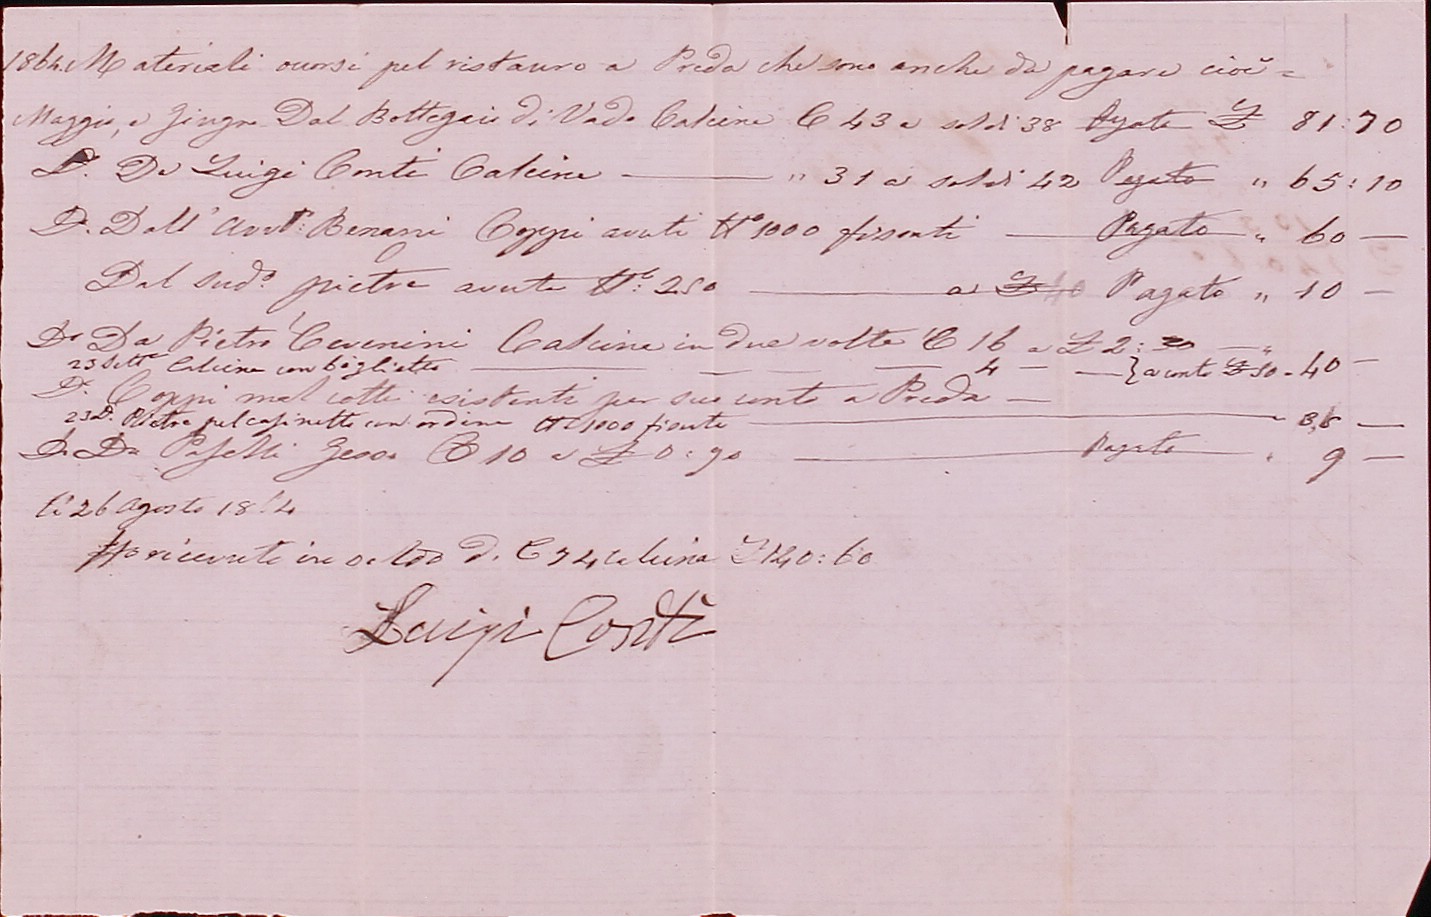 1864. Materiali ocorsi pel ristauro a Preda che sono anche da pagare cioè =
Maggio, e Giugno Dal Bottegaio di Vado Calcina C 43 a soldi 38 Pagato £ 81:70
D.º Da Luigi Conti Calcina — " 31 a soldi 42 Pagato " 65:10
D.º Dall' Avv.to Benani Coppi avuti N.º 1000 — Pagato " 60 —
Dal sud.º pietre avute N.º 250 — a £ 40 Pagato " 10 —
D.º Da Pietro Cevenini Calcina in due volte C 16 a £ 2: — " 40 —
25 Sett.e Calcina con biglietto — 4 — } a conto £ 30
D.º Coppi mal cotti esistenti per suo conto a Preda —
23 D.º Pietre pel casinetto con ordine N.º 1000 — 38 —
D.º Da Paselli Gesso C 10 a £ 0:90 — Pagato " 9 —
li 26 Agosto 1864
Ho ricevuto in saldo di C 74 calcina £ 140:60
Luigi Conti